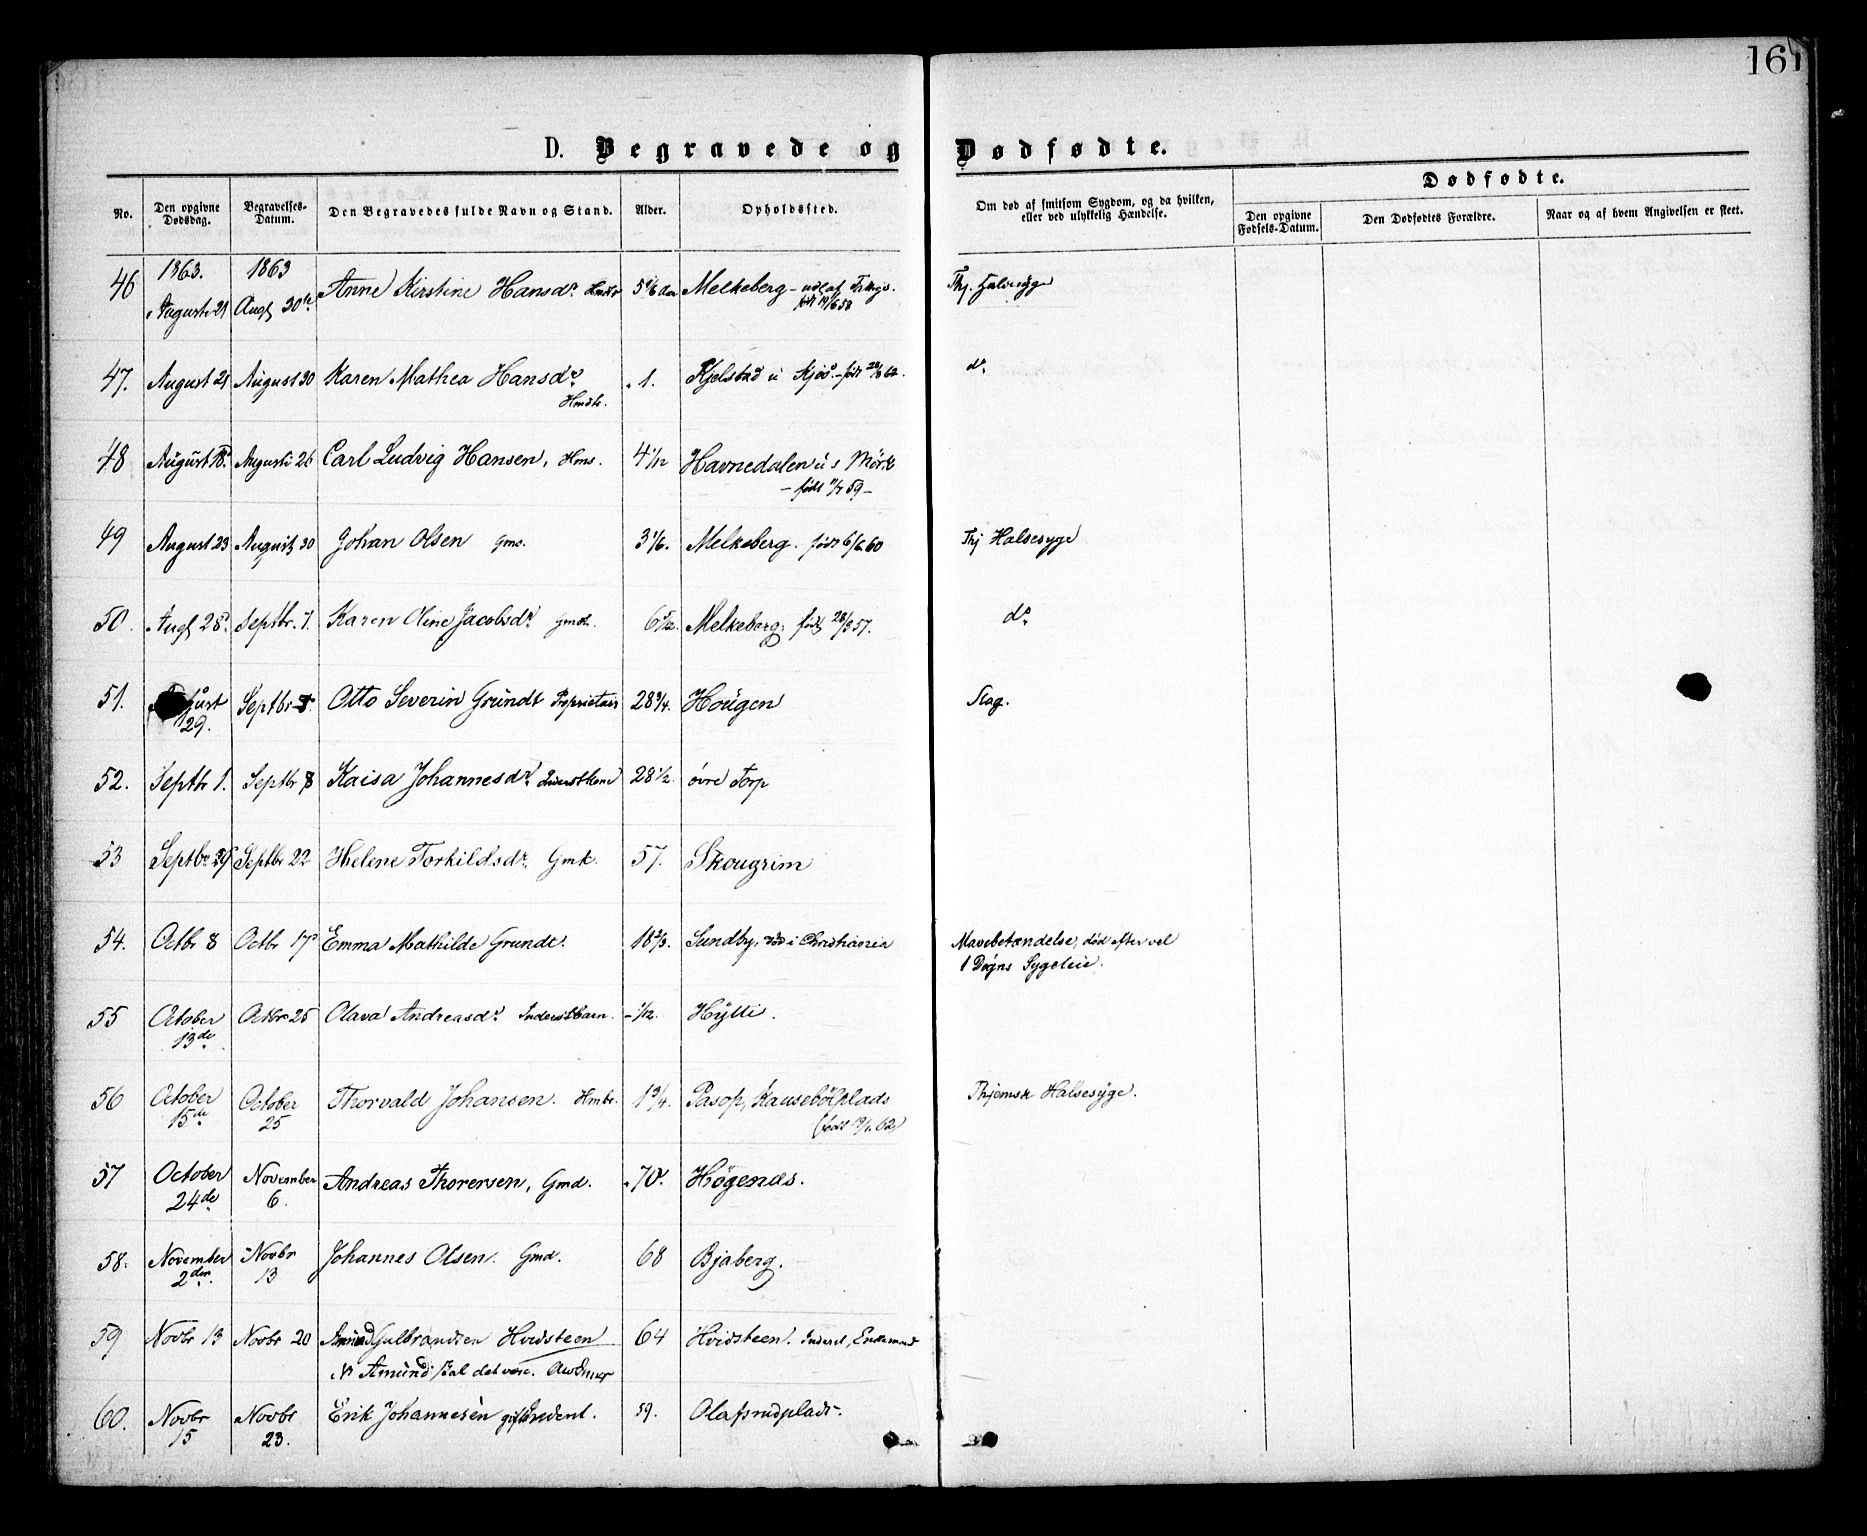 161
D. Begravede og Dødfødte.
No.
Den opgivne Dødsdag.
Begravelses-Datum.
Den Begravedes fulde Navn og Stand.
Alder.
Opholdssted.
Om død af smitsom Sygdom, og da hvilken, eller ved ulykkelig Hændelse.
Dødfødte.
Den opgivne Fødsels-Datum.
Den Dødfødtes Forældre.
Naar og af hvem Angivelsen er skeet.
1863. 1863
46 August 21 Augst 30te Anne Kirstine Hansdr. 5 1/6 Melkeberg Thj. Halssyge
født 19/6 58
47. August 21 August 30 Karen Mathea Hansdr. 1. Kjelstad u født 62. do
Hmdtr.
48 August 18. August 26 Carl Ludvig Hansen, Hms. 4 1/12 Havnedalen u s Mörk
- født 59 -
49 August 23 August 30 Johan Olsen Gms. 3 1/6. Melkeberg. født 6/6 60 Thj Halsesyge
50. Augt 28. Septbr. 7. Karen Oline Jacobsdr. Gmdtr. 6 5/12. Melkeberg, født 28/3 57. do
51. August Septbr Otto Severin Gründt Proprietair 28 3/4. Hougen Slag.
29.
52. Septbr 1. Septbr 8 Kaisa Johannesdr. Inderstkone 28 1/2. övre Torp
53 Septbr. Septbr 22 Helene Torkildsdr. Gmk. 57. Skougrim
54. Octbr 8 Octbr 17 Emma Mathilde Grundt. 18 2/3. Sundby, død i Christiania Mavebetændelse, död efter vel
1 Døgns Sygeleie.
55 October Octbr 25 Olava Andreasdr. Inderstbarn. - 1/12. Hytte.
13de
56 October October Thorvald Johansen. Hmbr. 1 3/4. Pasop, Kausebölplads Thjemsk Halsesyge.
15de 25 (født 62)
57 October November Andreas Thoresen, Gmd. 70. Högends.
24de 6.
58. November Novbr Johannes Olsen. Gmd. 68 Bjaberg.
2den. 13
59 Novbr 13 Novbr 20 Gulbrandsen Hvidsteen 64 Hvidsteen. Inderst, Enkemand
Amund skal det være.
60. Novbr Novbr Erik Johannesen gift Inderst. 59. Olafsrudplads.
15 23.